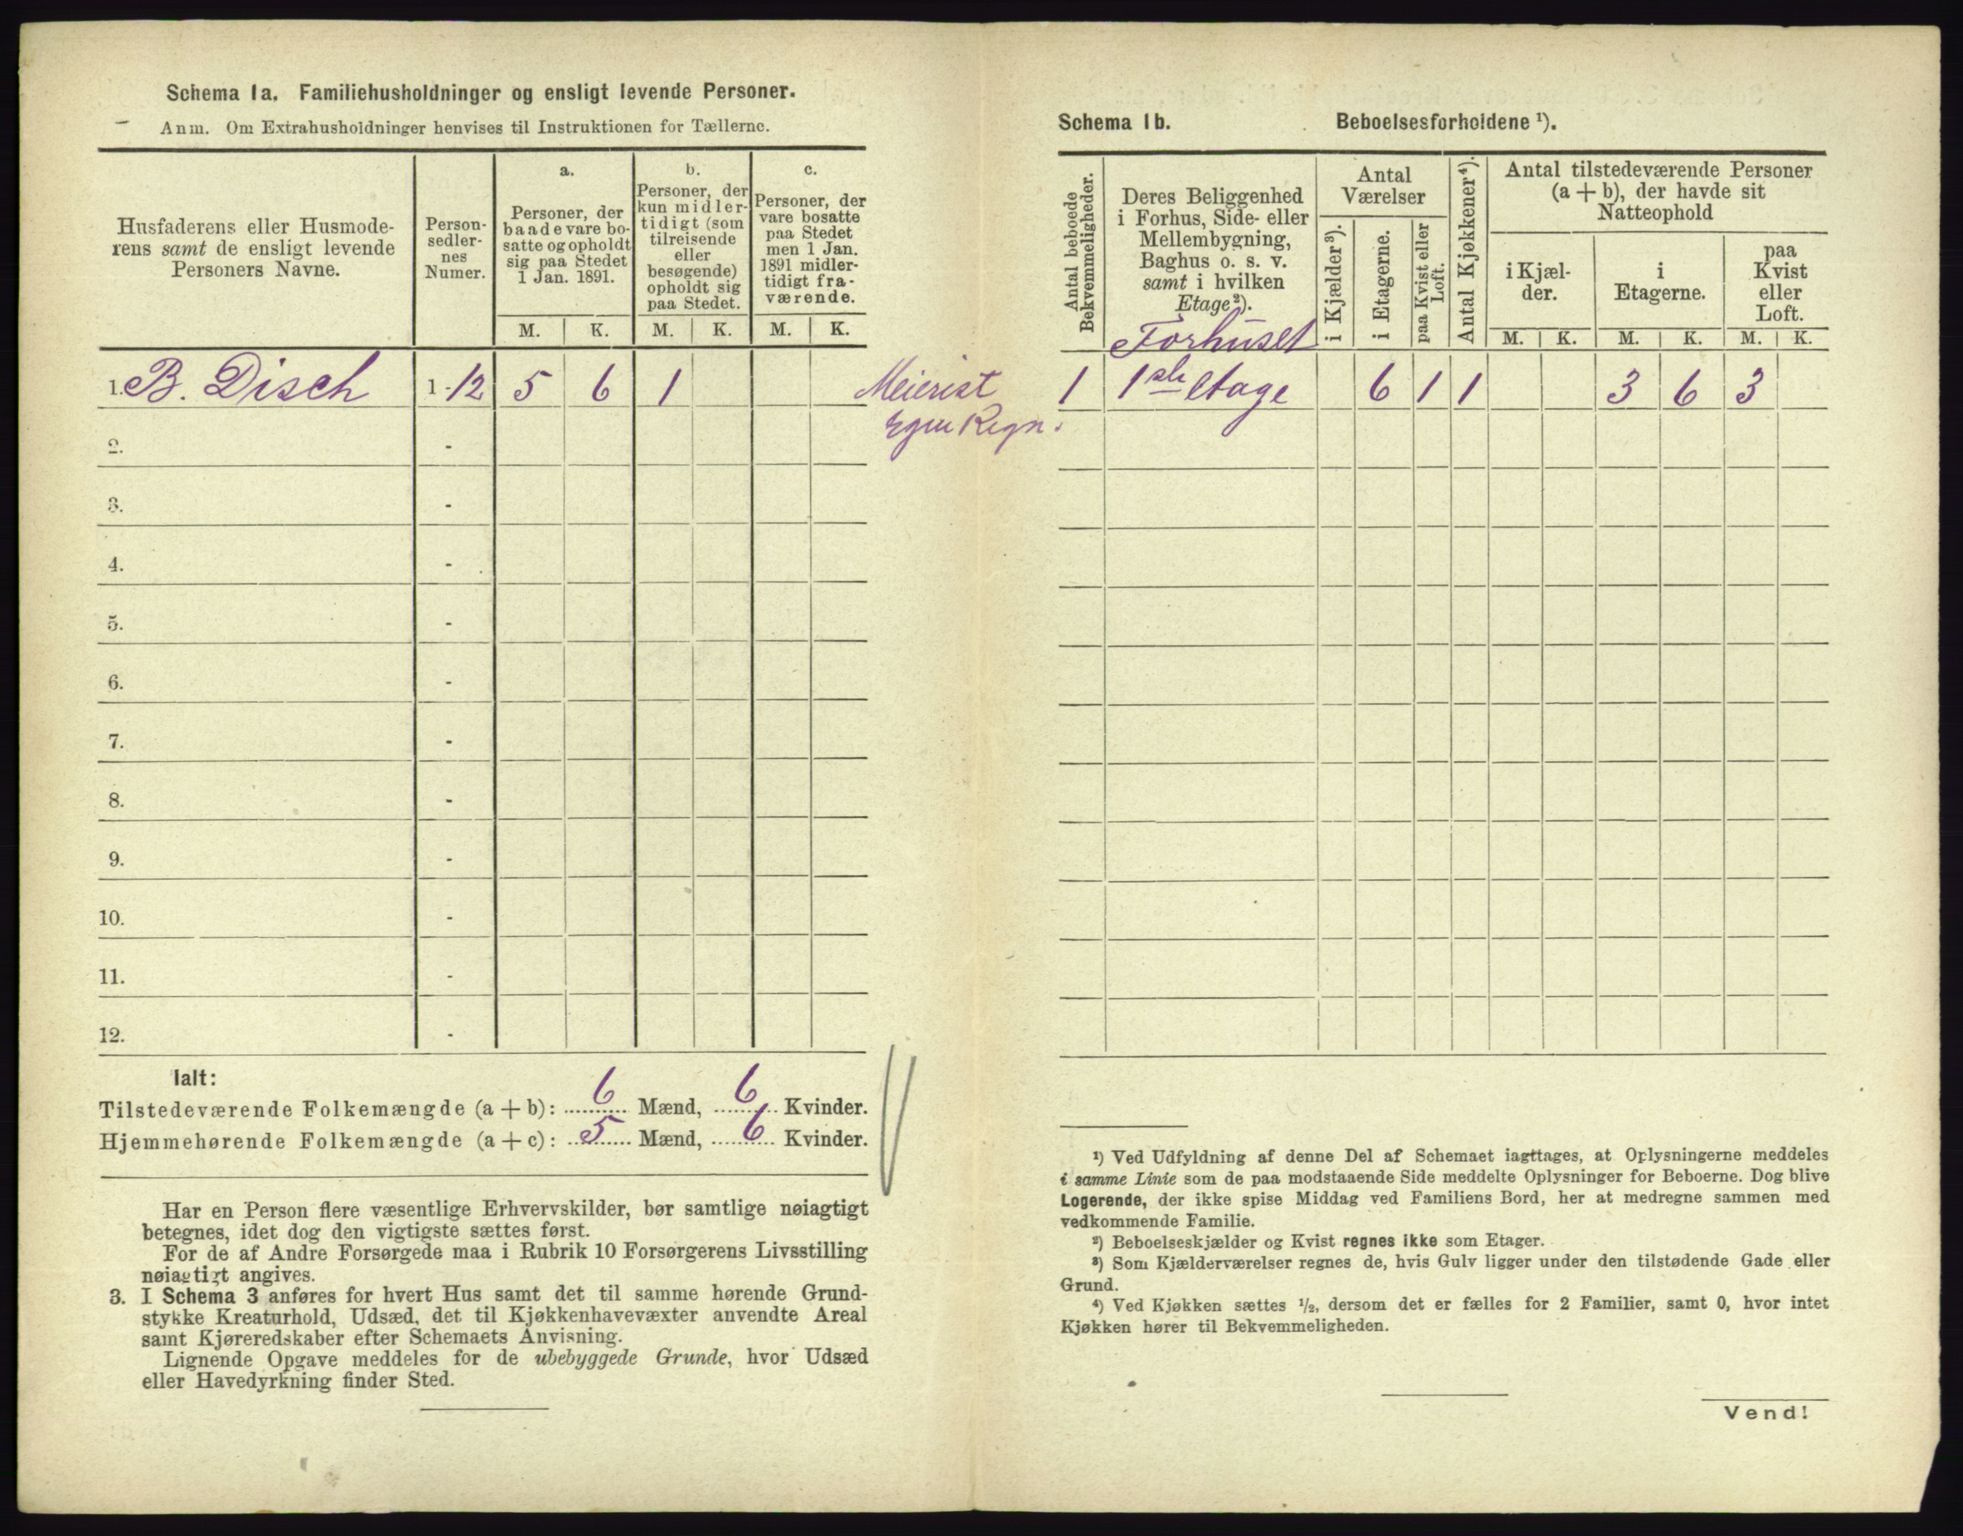 Schema 1a. Familiehusholdninger og ensligt levende Personer.
Anm. Om Extrahusholdninger henvises til Instruktionen for Tællerne.
Husfaderens eller Husmode-
rens samt de ensligt levende
Personers Navne.
Person-
sedler-
nes
Numer.
a.
Personer, der
baade vare bo-
satte og opholdt
sig paa Stedet
1 Jan. 1891.
b.
Personer, der
kun midler-
tidigt (som
tilreisende
eller
besøgende)
opholdt sig
paa Stedet.
c.
Personer, der
vare bosatte
paa Stedet
men 1 Jan.
1891 midler-
tidigt fra-
værende.
M. K. M. K. M. K.
1. B. Disch 1-12 5 6 1 Meierist
Egen Regn.
2. -
3. -
4. -
5. -
6. -
7. -
8. -
9. -
10. -
11. -
12. -
Ialt:
Tilstedeværende Folkemængde (a + b): 6 Mænd, 6 Kvinder.
Hjemmehørende Folkemængde (a + c): 5 Mænd, 6 Kvinder.
Har en Person flere væsentlige Erhvervskilder, bør samtlige nøiagtigt
betegnes, idet dog den vigtigste sættes først.
For de af Andre Forsørgede maa i Rubrik 10 Forsørgerens Livsstilling
nøiagtigt angives.
3. I Schema 3 anføres for hvert Hus samt det til samme hørende Grund-
stykke Kreaturhold, Udsæd, det til Kjøkkenhavevæxter anvendte Areal
samt Kjøreredskaber efter Schemaets Anvisning.
Lignende Opgave meddeles for de ubebyggede Grunde, hvor Udsæd
eller Havedyrkning finder Sted.
Schema 1b. Beboelsesforholdene ¹).
Antal beboede
Bekvemmeligheder.
Deres Beliggenhed
i Forhus, Side- eller
Mellembygning,
Baghus o. s. v.
samt i hvilken
Etage ²).
Antal
Værelser
i Kjælder ³).
i Etagerne.
paa Kvist eller
Loft.
Antal Kjøkkener ⁴).
Antal tilstedeværende Personer
(a + b), der havde sit
Natteophold
i Kjæl-
der.
i
Etagerne.
paa
Kvist
eller
Loft.
M. K. M. K. M. K.
Forhuset
1 1ste Etage 6 1 1 3 6 3
¹) Ved Udfyldning af denne Del af Schemaet iagttages, at Oplysningerne meddeles
i samme Linie som de paa modstaaende Side meddelte Oplysninger for Beboerne. Dog blive
Logerende, der ikke spise Middag ved Familiens Bord, her at medregne sammen med
vedkommende Familie.
²) Beboelseskjælder og Kvist regnes ikke som Etager.
³) Som Kjælderværelser regnes de, hvis Gulv ligger under den tilstødende Gade eller
Grund.
⁴) Ved Kjøkken sættes ½, dersom det er fælles for 2 Familier, samt 0, hvor intet
Kjøkken hører til Bekvemmeligheden.
Vend!